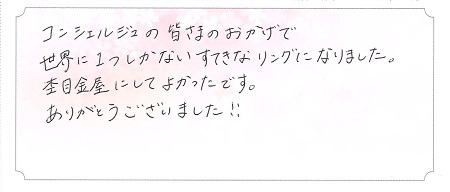 コンシェルジュの皆さまのおかげで
世界に1つしかないすてきなリングになりました。
杢目金屋にしてよかったです。
ありがとうございました!!